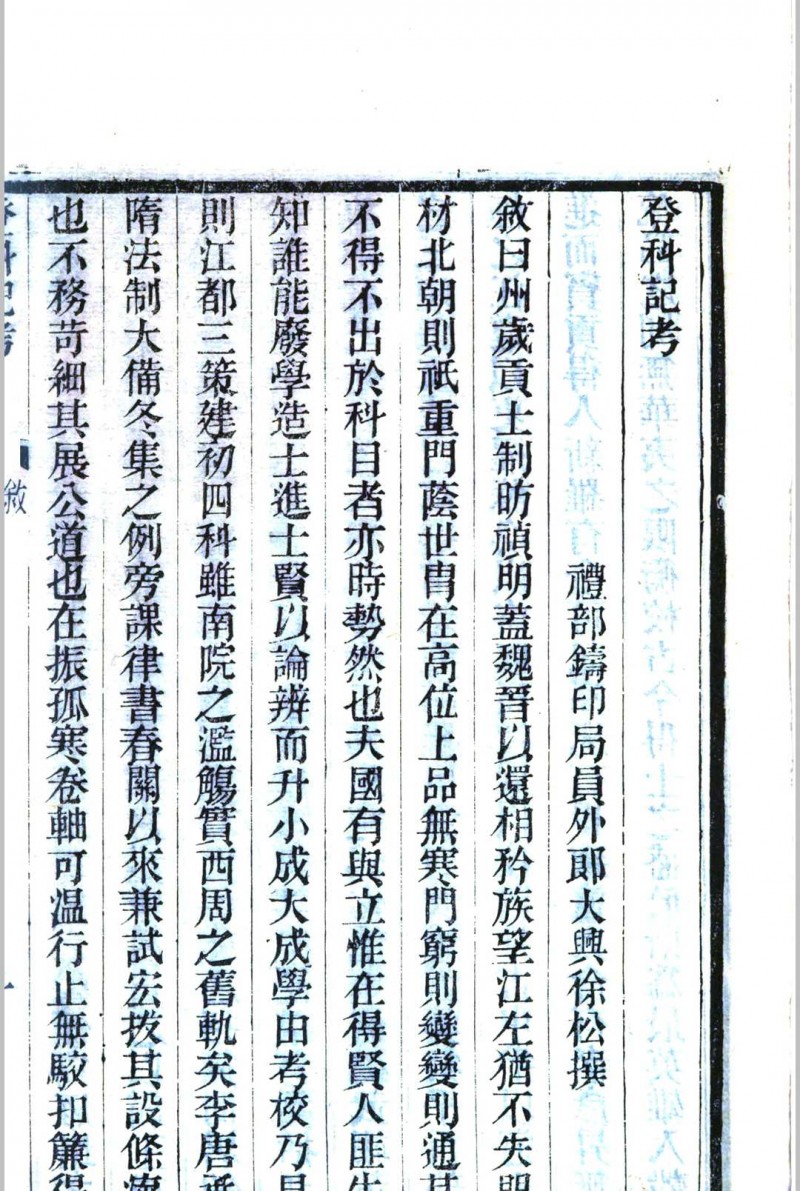 登科記考
禮部鑄印局員外郎大興徐松撰
敘曰州歲貢士制昉禎明蓋魏晉以還相矜族望江左猶不失
材北朝則祇重門蔭世胄在高位上品無寒門窮則變變則通
不得不出於科目者亦時勢然也夫國有與立惟在得賢人匪
知誰能廢學造士進士賢以論辨而升小成大成學由考校乃
則江都三策建初四科雖南院之濫觴實西周之舊軌矣李唐
隋法制大備冬集之例旁課律書春關以來兼試宏拔其設條
也不務苛細其展公道也在振孤寒卷軸可温行止無駮扣簾
登科記考
敘
一